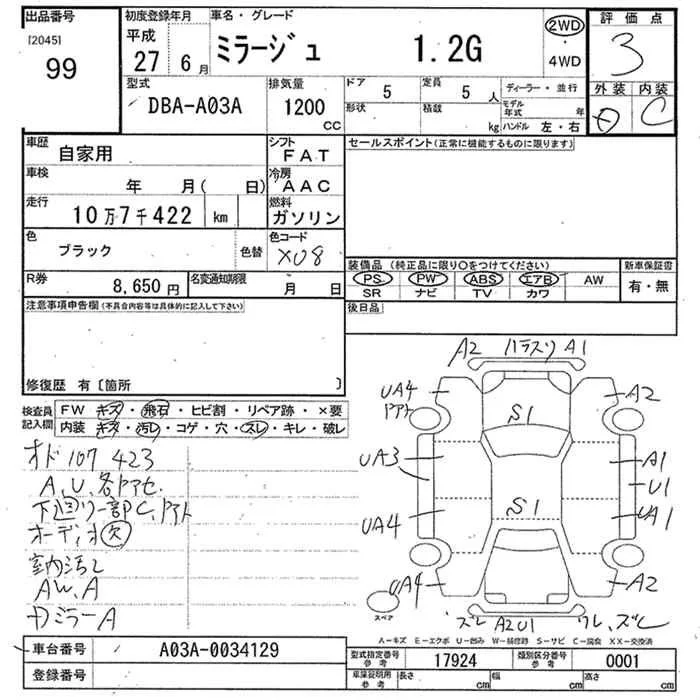 出品番号
[2045]
99
初度登録年月
平成
27 6 月
車名・グレード
ミラージュ 1.2G
2WD
・
4WD
評価点
3
外装 内装
C
型式
DBA-A03A
排気量
1200
CC
ドア
5
定員
5 人
形状
積載
kg
ディーラー・並行
モデル
年式
年
ハンドル 左・右
車歴
自家用
シフト
FAT
車検
年 月( 日)
冷房
AAC
走行
10万7千422 km
燃料
ガソリン
色
ブラック
色替
色コード
X08
R券
8,650 円
名変通知期限
月 日
セールスポイント(正常に機能するものに限ります)
装備品 (純正品に限り○をつけてください)
新車保証書
PS PW ABS エアB AW
有・無
SR ナビ TV カワ
後日品
注意事項申告欄(不具合内容等は具体的に記入して下さい)
修復歴 有〔箇所 〕
検査員
記入欄
FW キズ・飛石・ヒビ割・リペア跡・×要
内装 キズ・汚レ・コゲ・穴・スレ・キレ・破レ
オド 107 423
A,U,各
下廻り一部C,アト
オーディオ欠
室内汚レ
AW,A
ミラーA
A2 A1
UA4
A2
S1
UA3
A1
U1
S1
UA4
UA1
UA4
A2
スペア
ズレ A2U1 ワレ、ズレ
A-キズ E-エクボ U-凹み W-補修跡 S-サビ C-腐食 XX-交換済
車台番号
A03A-0034129
登録番号
型式指定番号
参考
17924
類別区分番号
参考
0001
車庫証明用
参考
長さ cm 幅 cm 高さ cm